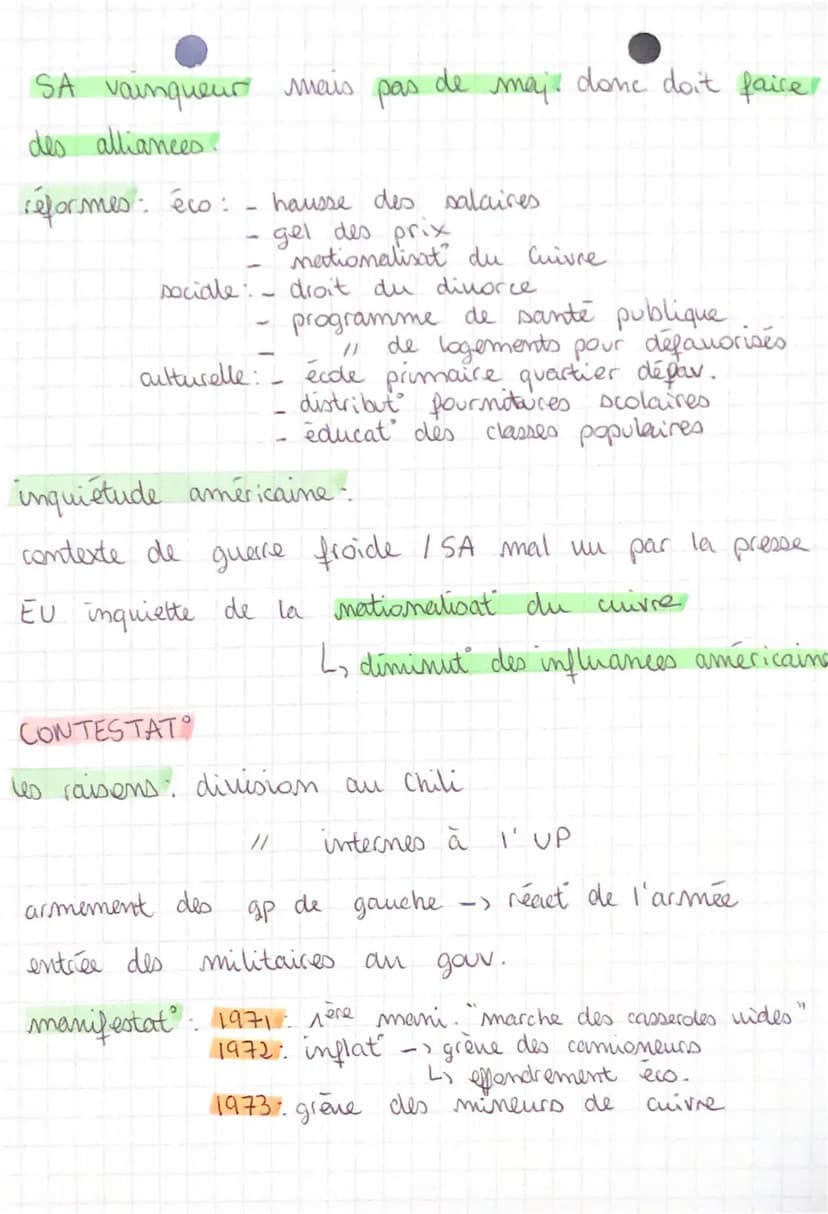 SA vainqueur mais pas de maj. donc doit faire
des alliances.
réformes : éco : - hausse des salaires
- gel des prix
- nationalisat° du cuivre
sociale : - droit du divorce
- programme de santé publique
- " de logements pour défavorisés
culturelle : - école primaire quartier défav.
- distribut° fournitures scolaires
- éducat° des classes populaires
inquiétude américaine :
contexte de guerre froide / SA mal vu par la presse
EU inquiette de la nationalisat° du cuivre
↳ diminut° des influances américaine
CONTESTAT°
les raisons : division au Chili
" internes à l'UP
armement des gp de gauche -> réact° de l'armée
entrée des militaires au gouv.
manifestat° : 1971 : 1ère mani. "marche des casseroles vides"
1972 : inflat° -> grève des camioneurs
↳ effondrement éco.
1973 : grève des mineurs de cuivre